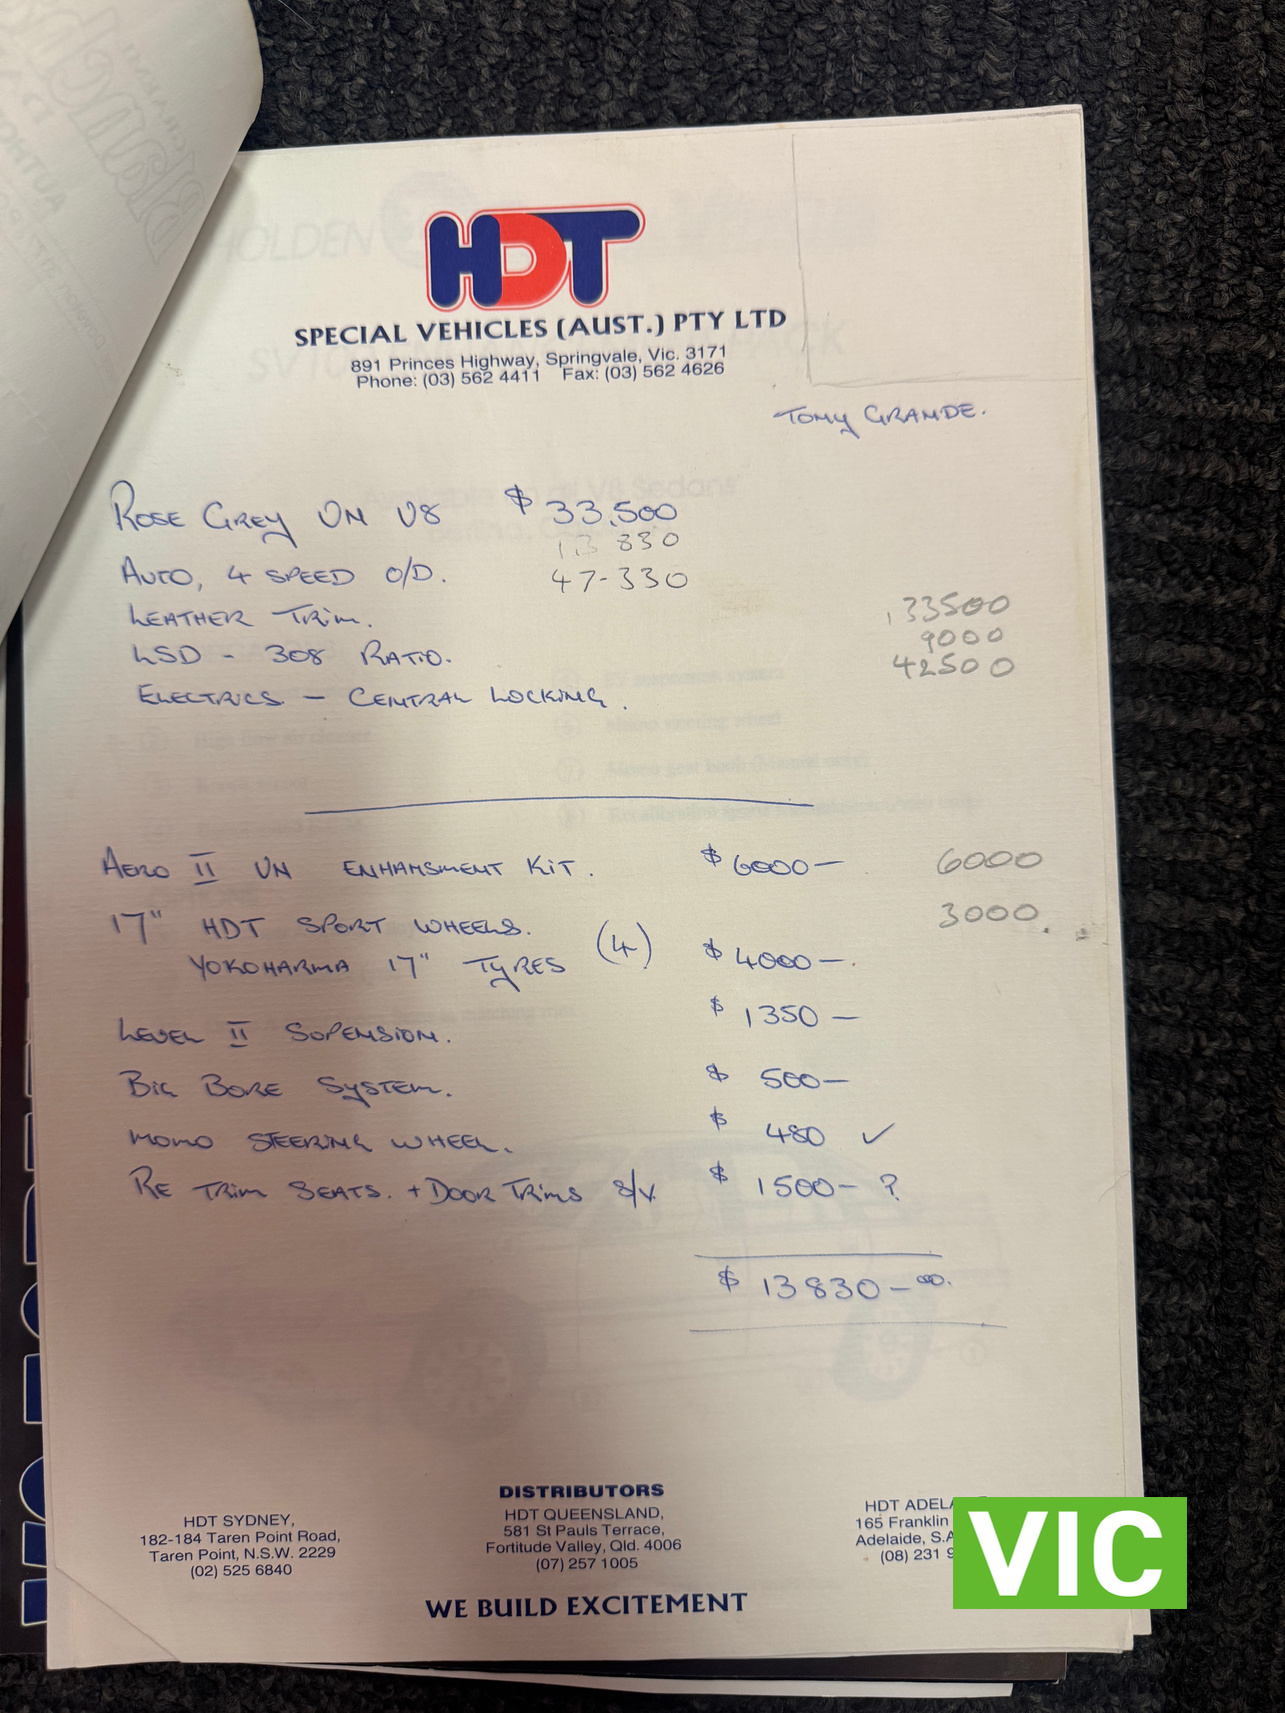 HDT
SPECIAL VEHICLES (AUST.) PTY LTD
891 Princes Highway, Springvale, Vic. 3171
Phone: (03) 562 4411 Fax: (03) 562 4626
TONY GRANDE.
ROSE GREY VN V8 $ 33,500
13 830
AUTO, 4 SPEED O/D. 47-330
LEATHER TRIM. 33500
LSD - 308 RATIO. 9000
42500
ELECTRICS - CENTRAL LOCKING.
AERO II VN ENHANSMENT KIT. $ 6000- 6000
17" HDT SPORT WHEELS. 3000.
YOKOHARMA 17" TYRES (4) $ 4000-.
LEVEL II SUPENSION. $ 1350-
BIG BORE SYSTEM. $ 500-
MOMO STEERING WHEEL. $ 480 ✓
RE TRIM SEATS. + DOOR TRIMS S/V. $ 1500- ?
$ 13830-00.
DISTRIBUTORS
HDT SYDNEY,
182-184 Taren Point Road,
Taren Point, N.S.W. 2229
(02) 525 6840
HDT QUEENSLAND,
581 St Pauls Terrace,
Fortitude Valley, Qld. 4006
(07) 257 1005
HDT
165 Franklin
Adelaide, S.A
(08) 231
WE BUILD EXCITEMENT
VIC